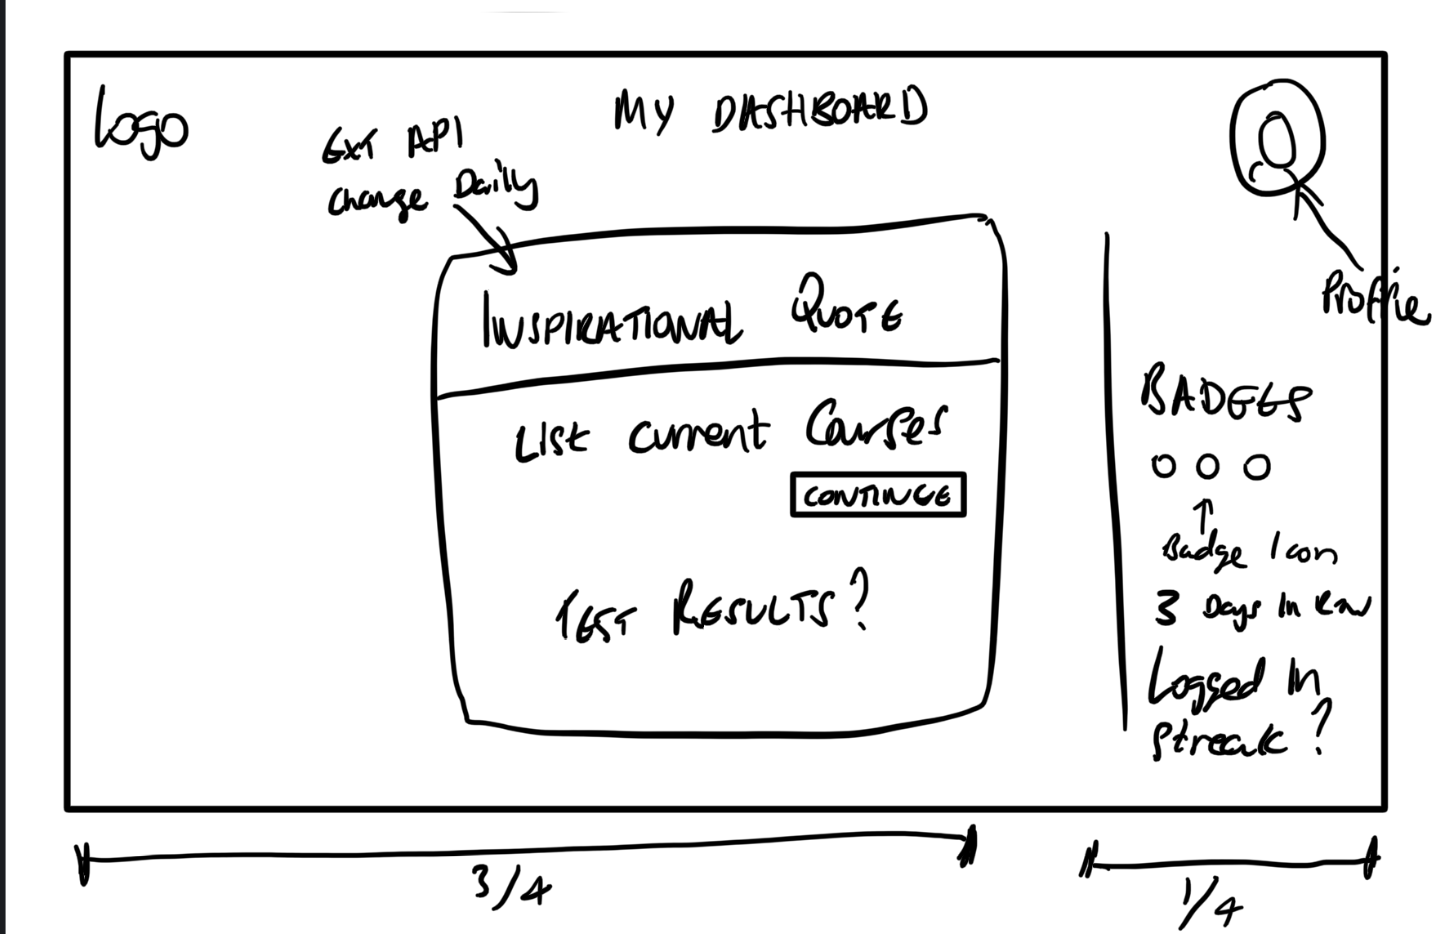 Logo
MY DASHBOARD
Ext API
Change Daily
Profile
INSPIRATIONAL QUOTE
LIST Current Courses
CONTINUE
TEST RESULTS?
BADGES
Badge Icon
3 Days In Row
Logged In
Streak?
3/4
1/4